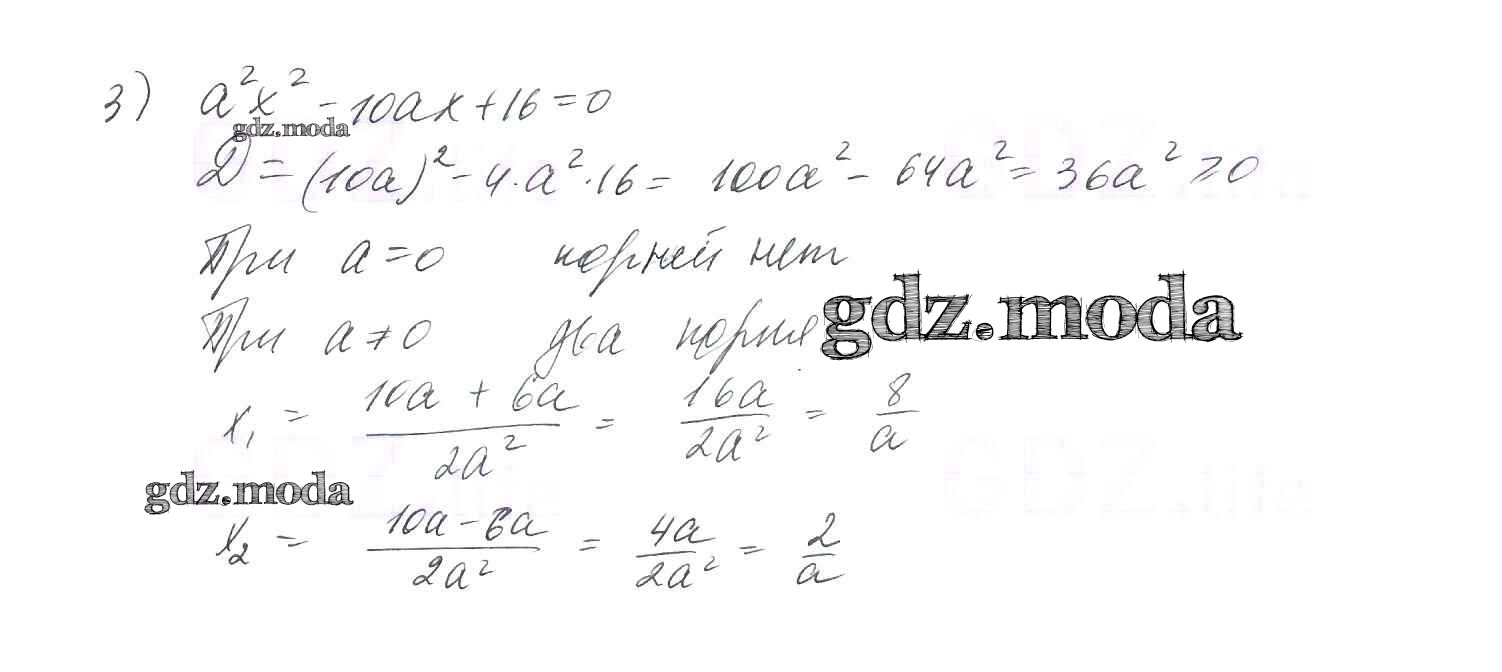 3) a²x² - 10ax + 16 = 0
gdz.moda
D = (10a)² - 4·a²·16 = 100a² - 64a² = 36a² ≥ 0
При a = 0 корней нет
При a ≠ 0 два корня
gdz.moda
x₁ = (10a + 6a)/(2a²) = 16a/(2a²) = 8/a
gdz.moda
x₂ = (10a - 6a)/(2a²) = 4a/(2a²) = 2/a